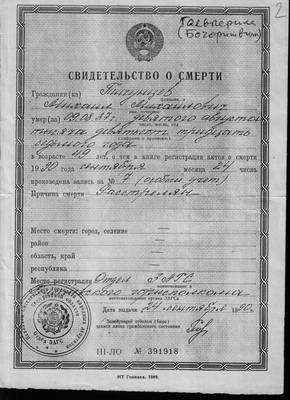 2
СВИДЕТЕЛЬСТВО О СМЕРТИ
Гражданин(ка)
Михаил Михайлович
умер(ла) 09.08.37г. девятого августа
тысяча девятьсот тридцать
седьмого года
в возрасте 49 лет, о чем в книге регистрации актов о смерти
1990 года сентября месяца 21 числа
произведена запись за № 7 (особый учет)
Причина смерти Расстрелян
Место смерти: город, селение —
район —
область, край —
республика —
Место регистрации Отдел ЗАГС
горисполкома
наименование и местонахождение органа ЗАГСа
Дата выдачи 21 сентября 1990г.
Заведующий отделом (бюро)
записи актов гражданского состояния
III-ЛО № 391918
МТ Гознака. 1989.